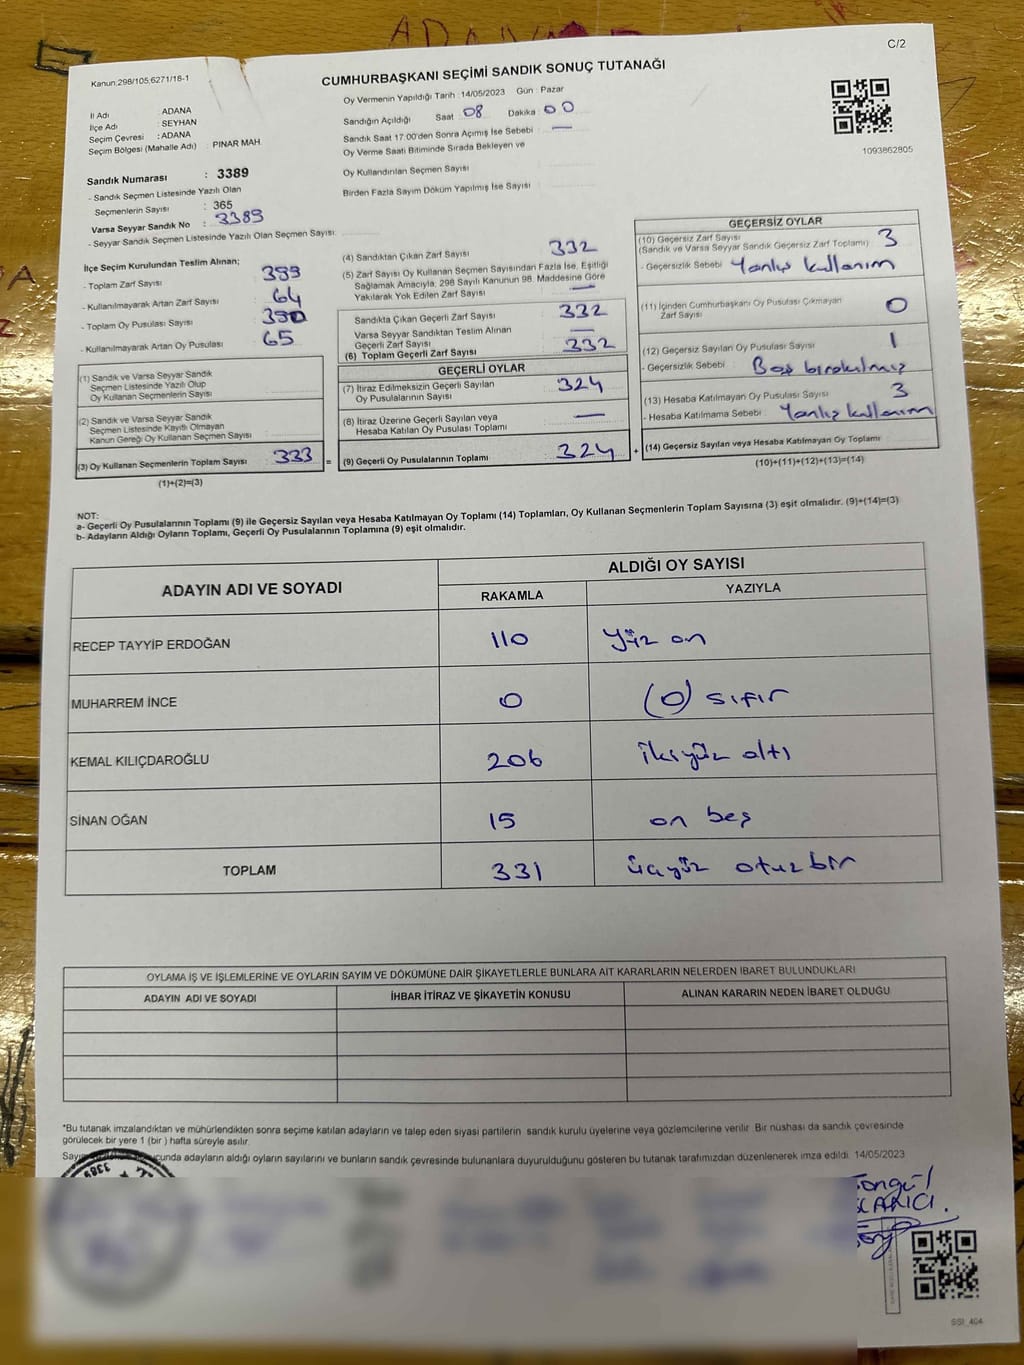 C/2
Kanun:298/105,6271/18-1
CUMHURBAŞKANI SEÇİMİ SANDIK SONUÇ TUTANAĞI
İl Adı : ADANA
İlçe Adı : SEYHAN
Seçim Çevresi : ADANA
Seçim Bölgesi (Mahalle Adı) : PINAR MAH.
Oy Vermenin Yapıldığı Tarih :14/05/2023 Gün : Pazar
Sandığın Açıldığı Saat : 08 Dakika : 00
Sandık Saat 17:00'den Sonra Açımış İse Sebebi : —
Oy Verme Saati Bitiminde Sırada Bekleyen ve
Oy Kullandırılan Seçmen Sayısı :
Birden Fazla Sayım Döküm Yapılmış İse Sayısı :
1093862805
Sandık Numarası : 3389
- Sandık Seçmen Listesinde Yazılı Olan
Seçmenlerin Sayısı : 365
Varsa Seyyar Sandık No : 3389
- Seyyar Sandık Seçmen Listesinde Yazılı Olan Seçmen Sayısı:
İlçe Seçim Kurulundan Teslim Alınan;
- Toplam Zarf Sayısı : 399
- Kullanılmayarak Artan Zarf Sayısı : 64
- Toplam Oy Pusulası Sayısı : 390
- Kullanılmayarak Artan Oy Pusulası : 65
(1) Sandık ve Varsa Seyyar Sandık
Seçmen Listesinde Yazılı Olup
Oy Kullanan Seçmenlerin Sayısı :
(2) Sandık ve Varsa Seyyar Sandık
Seçmen Listesinde Kayıtlı Olmayan
Kanun Gereği Oy Kullanan Seçmen Sayısı :
(3) Oy Kullanan Seçmenlerin Toplam Sayısı : 333 =
(1)+(2)=(3)
(4) Sandıktan Çıkan Zarf Sayısı : 332
(5) Zarf Sayısı Oy Kullanan Seçmen Sayısından Fazla İse, Eşitliği
Sağlamak Amacıyla, 298 Sayılı Kanunun 98. Maddesine Göre
Yakılarak Yok Edilen Zarf Sayısı : —
Sandıkta Çıkan Geçerli Zarf Sayısı : 332
Varsa Seyyar Sandıktan Teslim Alınan
Geçerli Zarf Sayısı : —
(6) Toplam Geçerli Zarf Sayısı : 332
GEÇERLİ OYLAR
(7) İtiraz Edilmeksizin Geçerli Sayılan
Oy Pusulasının Sayısı : 324
(8) İtiraz Üzerine Geçerli Sayılan veya
Hesaba Katılan Oy Pusulası Toplamı : —
(9) Geçerli Oy Pusulalarının Toplamı : 324 +
GEÇERSİZ OYLAR
(10) Geçersiz Zarf Sayısı
(Sandık ve Varsa Seyyar Sandık Geçersiz Zarf Toplamı) : 3
- Geçersizlik Sebebi : Yanlış kullanım
(11) İçinden Cumhurbaşkanı Oy Pusulası Çıkmayan
Zarf Sayısı : 0
(12) Geçersiz Sayılan Oy Pusulası Sayısı : 1
- Geçersizlik Sebebi : Boş bırakılmış
(13) Hesaba Katılmayan Oy Pusulası Sayısı : 3
- Hesaba Katılmama Sebebi : Yanlış kullanım
(14) Geçersiz Sayılan veya Hesaba Katılmayan Oy Toplamı :
(10)+(11)+(12)+(13)=(14)
NOT:
a- Geçerli Oy Pusulalarının Toplamı (9) ile Geçersiz Sayılan veya Hesaba Katılmayan Oy Toplamı (14) Toplamları, Oy Kullanan Seçmenlerin Toplam Sayısına (3) eşit olmalıdır. (9)+(14)=(3)
b- Adayların Aldığı Oyların Toplamı, Geçerli Oy Pusulalarının Toplamına (9) eşit olmalıdır.
ADAYIN ADI VE SOYADI
ALDIĞI OY SAYISI
RAKAMLA YAZIYLA
RECEP TAYYİP ERDOĞAN 110 yüz on
MUHARREM İNCE 0 (0) sıfır
KEMAL KILIÇDAROĞLU 206 ikiyüz altı
SİNAN OĞAN 15 on beş
TOPLAM 331 üçyüz otuzbir
OYLAMA İŞ VE İŞLEMLERİNE VE OYLARIN SAYIM VE DÖKÜMÜNE DAİR ŞİKAYETLERLE BUNLARA AİT KARARLARIN NELERDEN İBARET BULUNDUKLARI
ADAYIN ADI VE SOYADI İHBAR İTİRAZ VE ŞİKAYETİN KONUSU ALINAN KARARIN NEDEN İBARET OLDUĞU
*Bu tutanak imzalandıktan ve mühürlendikten sonra seçime katılan adayların ve talep eden siyasi partilerin sandık kurulu üyelerine veya gözlemcilerine verilir. Bir nüshası da sandık çevresinde
görülecek bir yere 1 (bir) hafta süreyle asılır.
adayların aldığı oyların sayılarını ve bunların sandık çevresinde bulunanlara duyurulduğunu gösteren bu tutanak tarafımızdan düzenlenerek imza edildi. 14/05/2023
3389
SSI_404